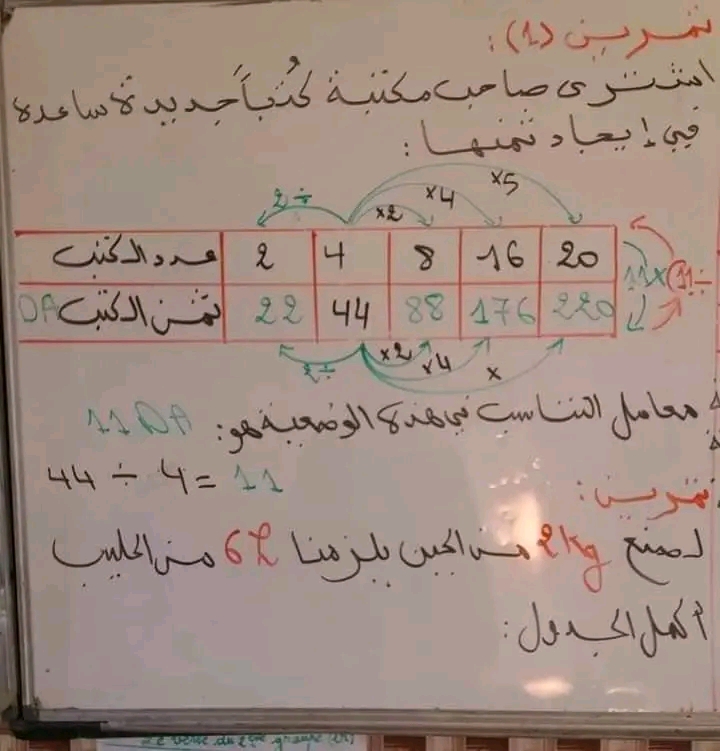 تمرين (1):
اشترى صاحب مكتبة كُتُباً جديدة ساعده
في إيجاد ثمنها:
2÷ ×2 ×4 ×5
عدد الكتب 2 4 8 16 20
ثمن الكتب DA 22 44 88 176 220
11× 11÷
2÷ ×2 ×4 ×
معامل التناسب في هذه الوضعية هو: 11DA
44 ÷ 4 = 11
تمرين:
لصنع 2Kg من الجبن يلزمنا 6L من الحليب
أكمل الجدول:
Le verbe du 2ème groupe (ir)